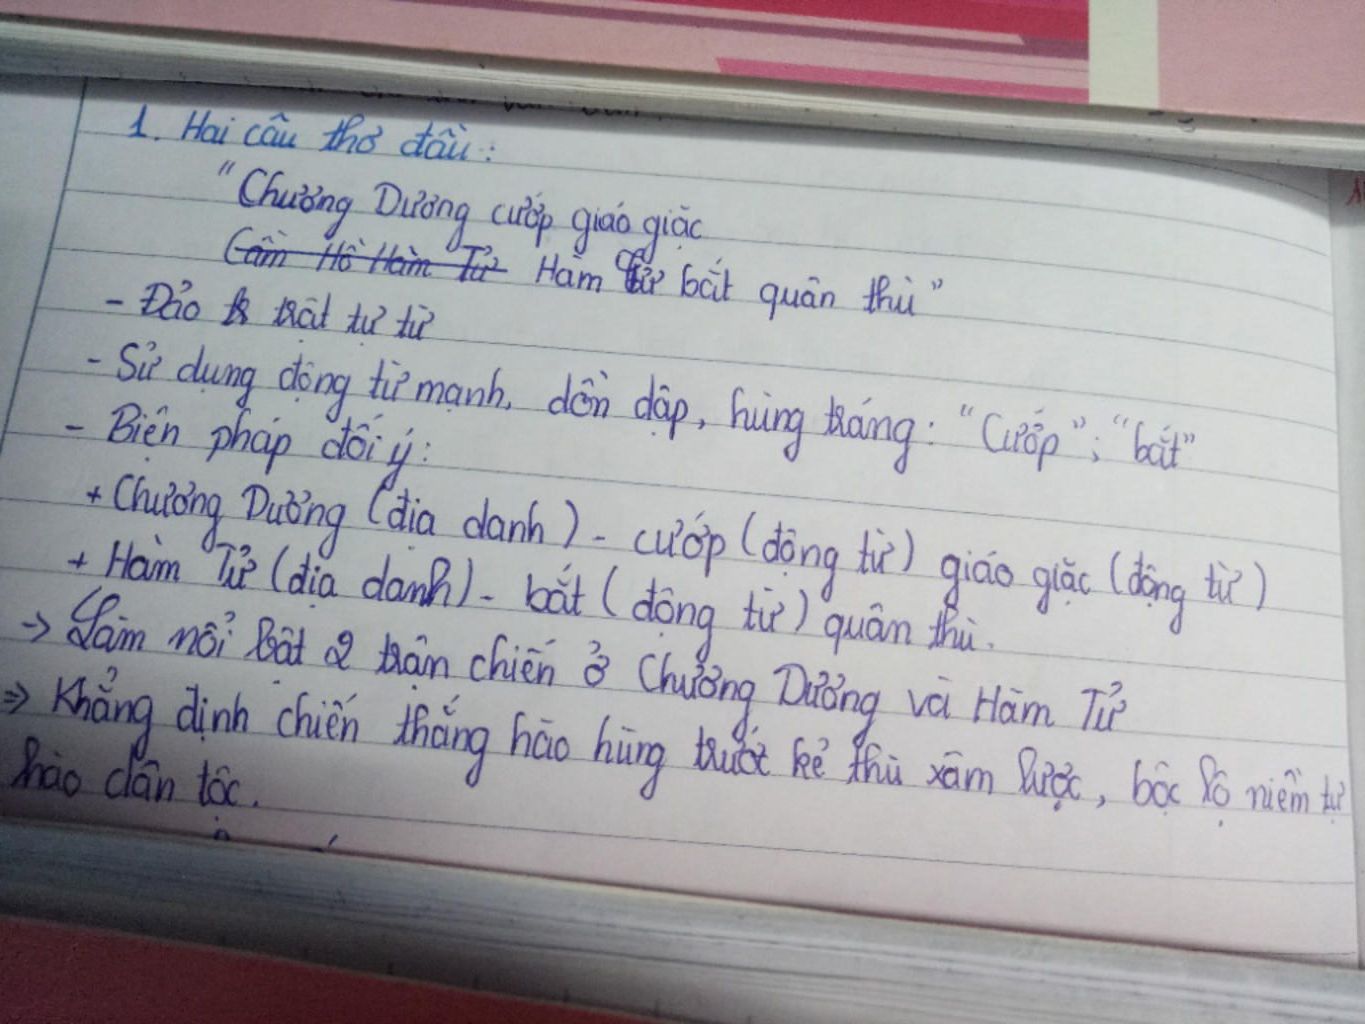 1. Hai câu thơ đầu:
"Chương Dương cướp giáo giặc
Cầm Hồ Hàm Tử Hàm Tử bắt quân thù"
- Đảo trật tự từ
- Sử dụng động từ mạnh, dồn dập, hùng tráng: "Cướp"; "bắt"
- Biện pháp đối ý:
+ Chương Dương (địa danh) - cướp (động từ) giáo giặc (động từ)
+ Hàm Tử (địa danh) - bắt (động từ) quân thù.
-> Làm nổi bật 2 trận chiến ở Chương Dương và Hàm Tử
=> Khẳng định chiến thắng hào hùng trước kẻ thù xâm lược, bộc lộ niềm tự
hào dân tộc.